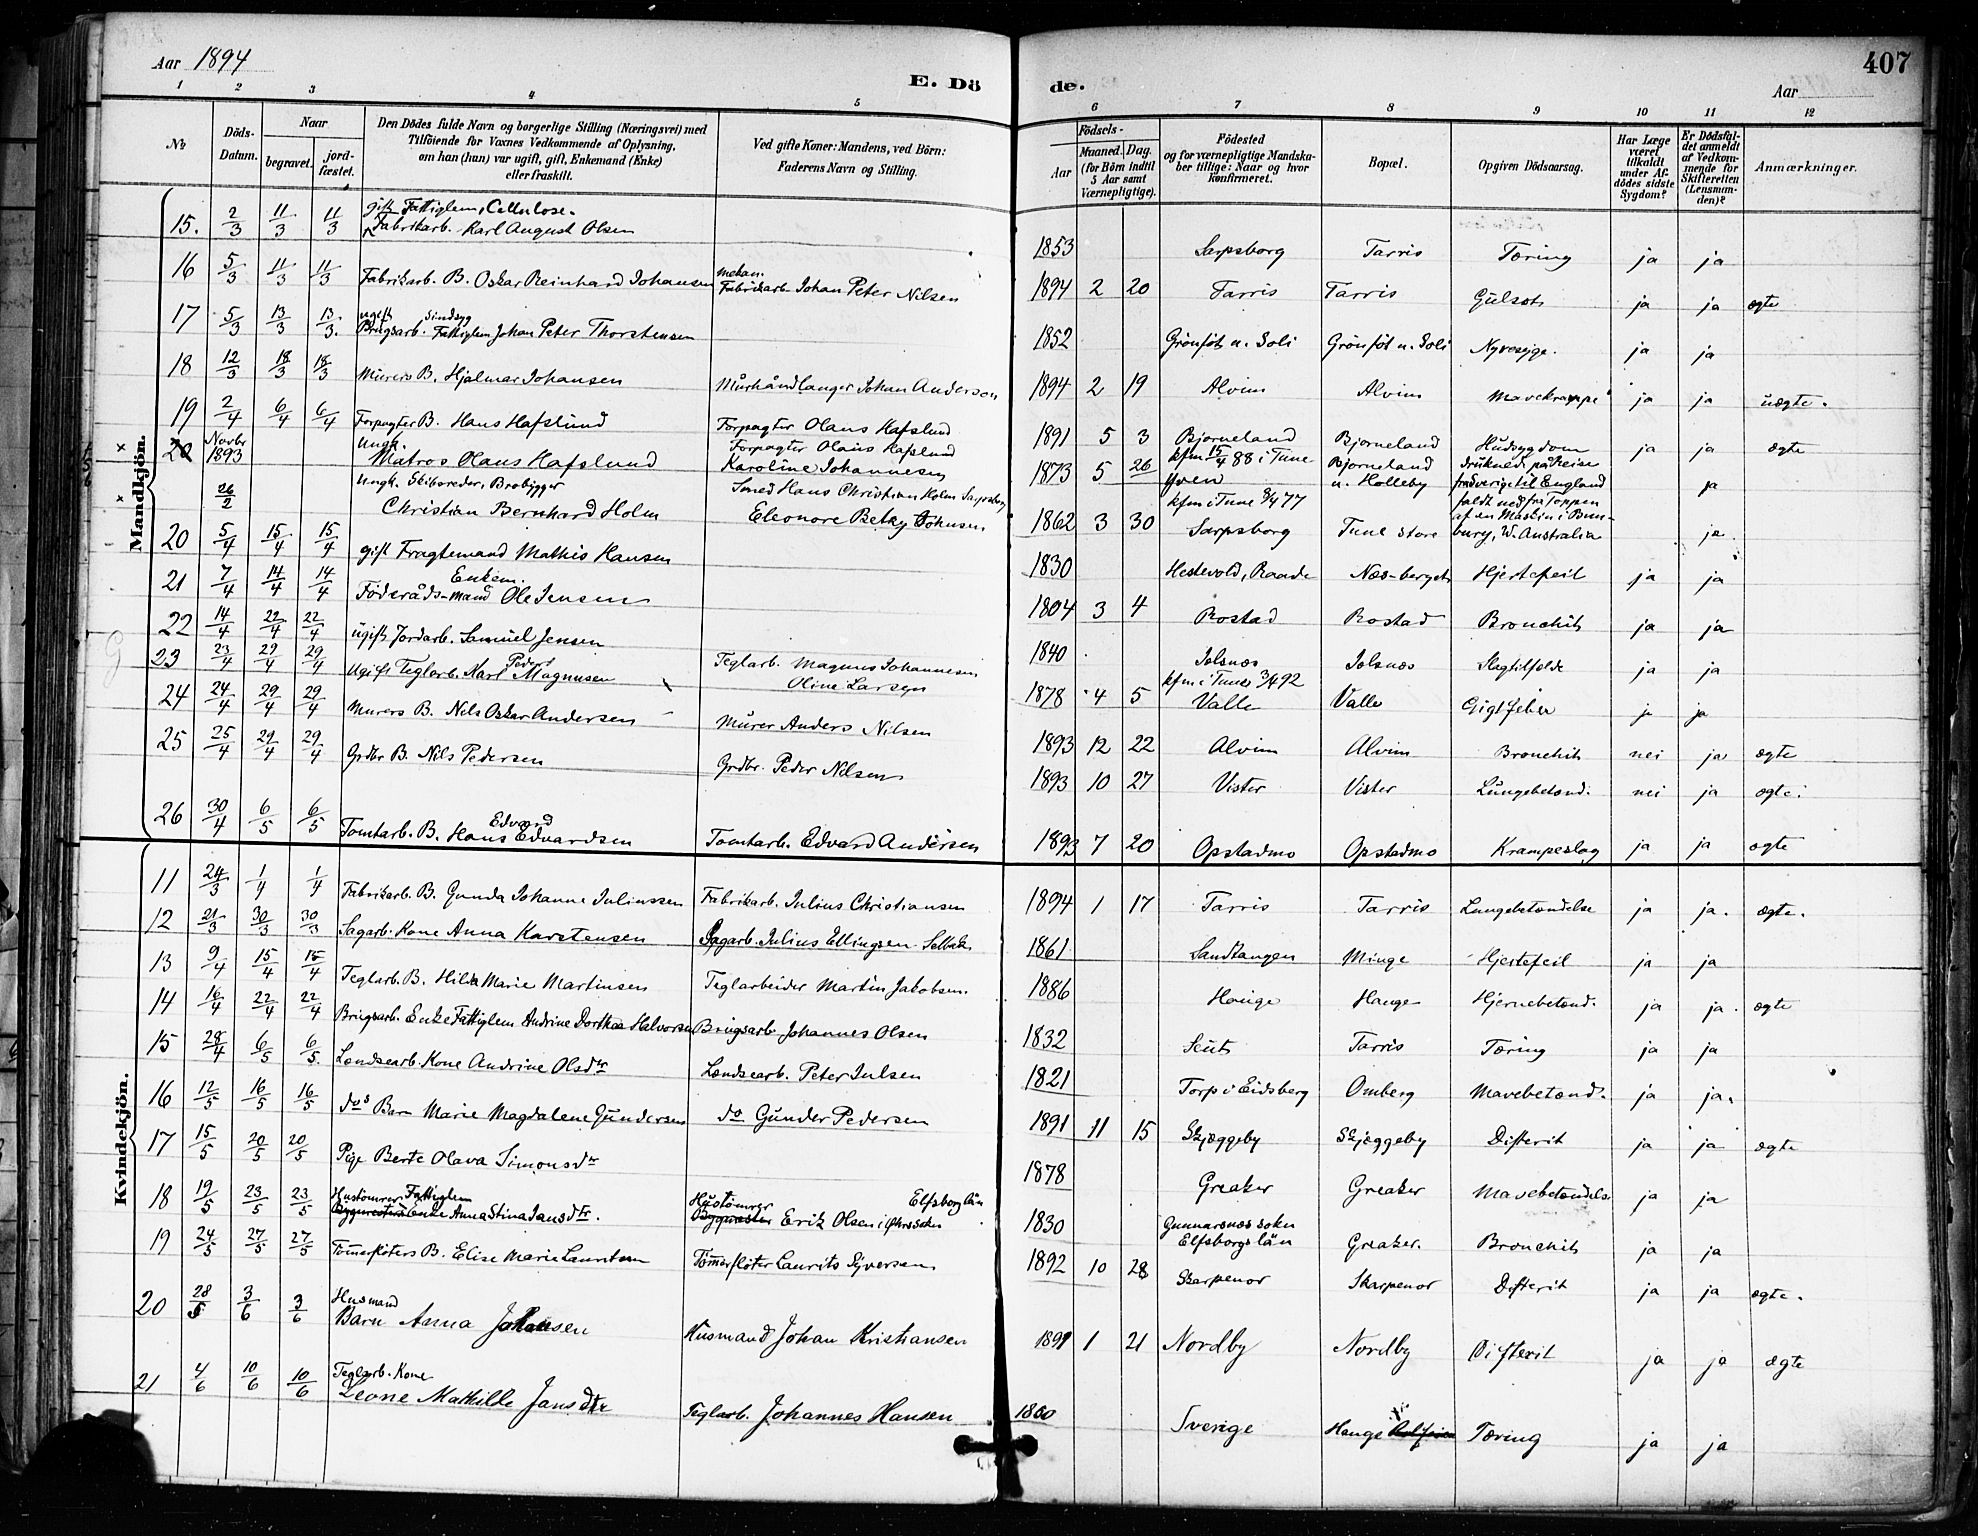 Aar 1894
E. Dö de.
407
Aar
1 2 3 4 5 6 7 8 9 10 11 12
No
Döds-Datum.
Naar
begravet.
jord-fæstet.
Den Dödes fulde Navn og borgerlige Stilling (Næringsvei) med
Tilföiende for Voxnes Vedkommende af Oplysning,
om han (hun) var ugift, gift, Enkemand (Enke)
eller fraskilt.
Ved gifte Koner: Mandens, ved Börn:
Faderens Navn og Stilling.
Födsels-
Aar
Maaned. Dag.
(for Börn indtil
5 Aar samt
Værnepligtige).
Födested
og for værnepligtige Mandska-
ber tillige: Naar og hvor
konfirmeret.
Bopæl.
Opgiven Dödsaarsag.
Har Læge
været
tilkaldt
under Af-
dödes sidste
Sygdom?
Er Dödsfal-
det anmeldt
af Vedkom-
mende for
Skifteretten
(Lensman-
den)?
Anmærkninger.
Mandkjön.
15. 2/3 11/3 11/3 gift Fattiglem, Cellulose-
Fabrikarb. Karl August Olsen 1853 Sarpsborg Tarris Tæring ja ja
16 5/3 11/3 11/3 Fabrikarb. B. Oskar Reinhard Johansen mekan. Fabrikarb. Johan Peter Nilsen 1894 2 20 Tarris Tarris Gulsot ja ja ægte
17 5/3 13/3 13/3. ugift Sindsyg
Brugsarb. Fattiglem Johan Peter Thorstensen 1852 Grönföt u. Soli Grönföt u. Soli Nyresyge. ja ja
18 12/3 18/3 18/3 Murers B. Hjalmar Johansen Murhåndlanger Johan Anderson 1894 2 19 Alvim Alvim Mavekrampe ja ja uægte.
19 2/4 6/4 6/4 Forpagter B. Hans Hafslund Forpagter Olaus Hafslund 1891 5 3 Bjorneland Bjorneland Hudsygdom ja ja ægte
× 20 Novbr 1893 Ungk.
Matros Olaus Hafslund Forpagter Olaus Hafslund
Karoline Johannesen 1873 5 26 kfm 15/4 88 i Tune
Yven Bjorneland
u. Holleby druknede på Reise
fra Sverige til England ja
× 26/2 Ungk. Skibsreder, Brobygger
Christian Bernhard Holm Smed Hans Christian Holm Sarpsborg
Eleonore Betzy Johnsen 1862 3 30 kfm i Tune 8/4 77
Sarpsborg Tune store faldt ned fra Toppen
af en Maskin i Bun-
bury, W. Australia ja
20 5/4 15/4 15/4 gift Fragtemand Mathis Hansen 1830 Hestevold, Raade Næs-berget Hjertefeil ja ja
21 7/4 14/4 14/4 Enkem.
Föderåds-mand Ole Jensen 1804 3 4 Rostad Rostad Bronchit ja ja
22 14/4 22/4 22/4 ugift Jordarb. Samuel Jensen 1840 Jelsnæs Jelsnæs Slagtilfælde ja ja
23 23/4 29/4 29/4 Ugift Teglarb. Karl Peder Magnusen Teglarb. Magnus Johannesen
Oline Larsen 1878 4 5 kfm i Tune 3/4 92
Valle Valle Gigtfeber ja ja
24 24/4 29/4 29/4 Murers B. Nils Oskar Andersen Murer Anders Nilsen 1893 12 22 Alvim Alvim Bronchit nei ja ægte
25 25/4 29/4 29/4 Grdbr B. Nils Pedersen Grdbr. Peder Nilsen 1893 10 27 Vister Vister Lungebetænd. nei ja ægte.
26 30/4 6/5 6/5 Tomtarb. B. Hans Edvard Edvardsen Tomtarb. Edvard Andersen 1893 7 20 Opstadmo Opstadmo Krampeslag ja ja ægte
Kvindekjön.
11 24/3 1/4 1/4 Fabrikarb. B. Gunda Johanne Juliussen Fabrikarb. Julius Christiansen 1894 1 17 Tarris Tarris Lungebetændelse ja ja. ægte.
12 21/3 30/3 30/3 Sagarb. Kone Anna Karstensen Sagarb. Julius Ellingsen Selbak 1861 Sandtangen Minge Hjertefeil ja ja
13 9/4 15/4 15/4 Teglarb. B. Hilda Marie Martinsen Teglarbeider Martin Jakobsen. 1886 Hauge Hauge Hjernebetænd. ja ja. ægte
14 16/4 22/4 22/4 Brugsarb. Enke Fattiglem Andrine Dorthea Halvorsen Brugsarb. Johannes Olsen 1832 Seut Tarris Tæring ja ja
15 28/4 6/5 6/5. Lændsearb. Kone Andrine Olsdtr Lændsearb. Peter Julsen 1821 Torp i Eidsberg Omberg Mavebetænd. ja ja.
16 12/5 16/5 16/5 dos Barn Marie Magdalene Gundersen do Gunder Pedersen 1891 11 15 Skjæggeby Skjæggeby Difterit ja ja ægte
17 15/5 20/5 20/5 Pige Berte Olava Simonsdr 1878 Greaker Greaker Mavebetændelse ja ja
18 19/5 23/5 23/5 Hustömrer Fattiglem
Bygmesters Enke Anna Stina Jansdtr. Hustömrer Elfsborg län
Bygmester Erik Olsen i Örs soken 1830 Gunnarsnæs soken
Elfsborgs län Greaker. Bronchit ja ja
19 24/5 27/5 27/5 Tömmerflöters B. Elise Marie Lauritsen Tömmerflöter Laurits Syversen 1892 10 28 Skarpenor Skarpenor Difterit ja ja ægte.
20 28/5 3/6 3/6 Husmand
Barn Anna Johansen Husmand Johan Kristiansen 1891 1 21 Nordby Nordby Difterit ja ja ægte
21 4/6 10/6 10/6 Teglarb. Kone
Leone Mathilde Jansdtr Teglarb. Johannes Hansen 1860 Sverige Hauge Tæring ja ja